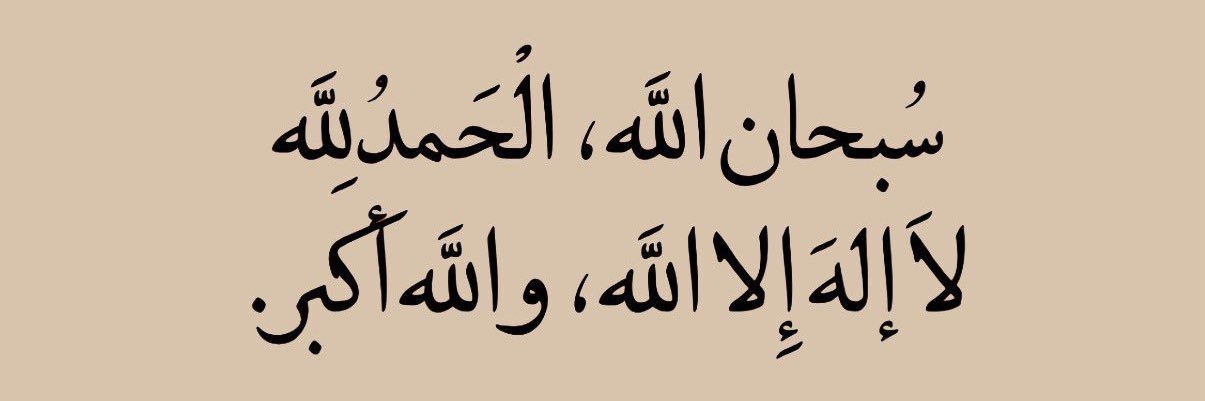 سُبحان اللَّه، الْحَمدُلِلَّه
لاَ إلهَ إِلا اللَّه، واللَّه أكبر.